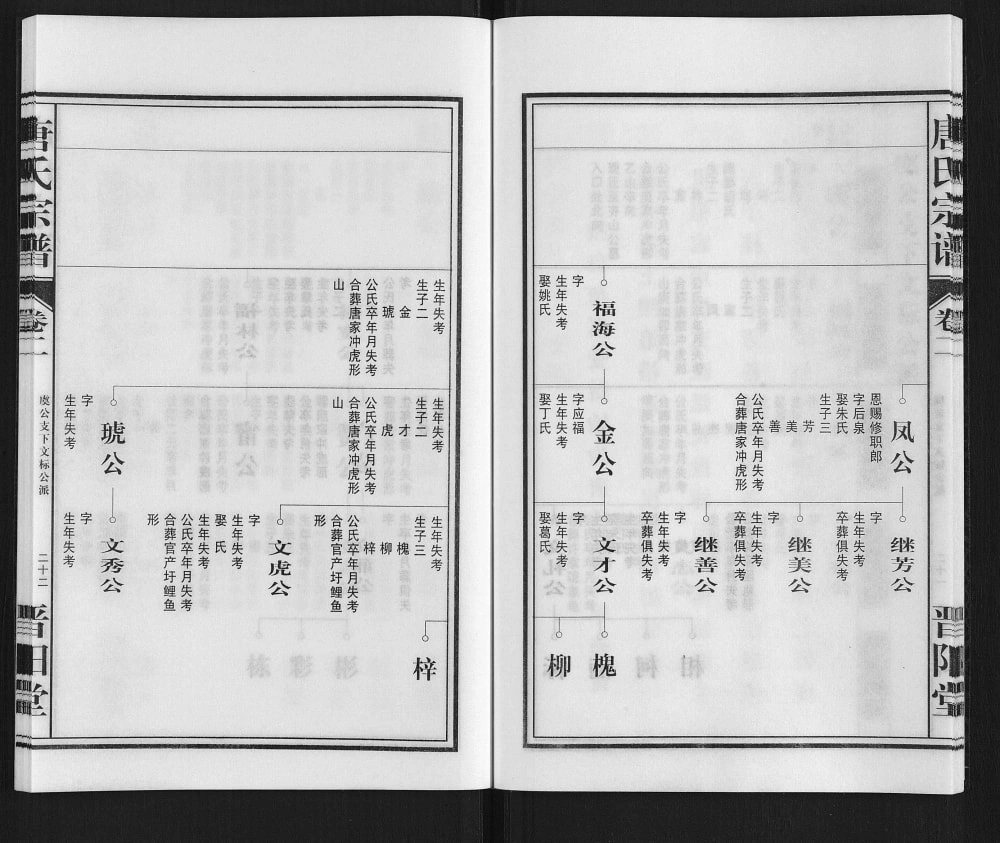 唐氏宗谱
卷二
晋阳堂
福海公
字
生年失考
娶姚氏
凤公
恩赐修职郎
字后泉
娶朱氏
生子三
芳
美
善
公氏卒年月失考
合葬唐家冲虎形
金公
字应福
生年失考
娶丁氏
继芳公
字
生年失考
卒葬俱失考
继美公
字
生年失考
卒葬俱失考
继善公
字
生年失考
卒葬俱失考
文才公
字
生年失考
娶葛氏
槐
柳
生年失考
生子二
金
琥
公氏卒年月失考
合葬唐家冲虎形
山
生年失考
生子二
才
虎
公氏卒年月失考
合葬唐家冲虎形
山
琥公
字
生年失考
生年失考
生子三
槐
柳
梓
公氏卒年月失考
合葬官产圩鲤鱼
形
文虎公
字
生年失考
娶 氏
生年失考
公氏卒年月失考
合葬官产圩鲤鱼
形
文秀公
字
生年失考
梓
唐氏宗谱
卷二
虞公支下文标公派
二十二
晋阳堂